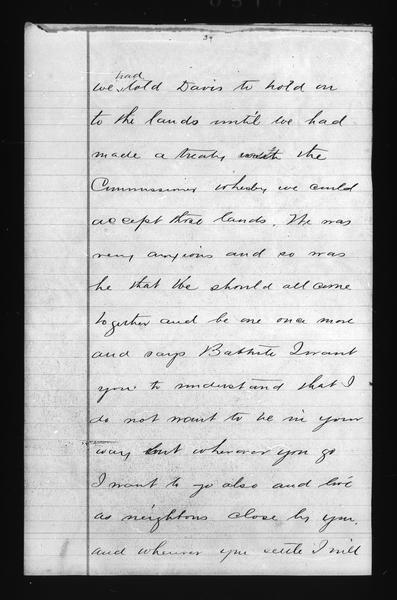 34
had
we told Davis to hold on
to the lands until we had
made a treaty with the
Commissioner whereby we could
accept those lands. He was
very anxious and so was
he that We should all come
together and be one once more
and says Battiste I want
you to understand that I
do not want to be in your
way but wherever you go
I want to go also and live
as neighbors close by you,
and wherever you settle I will